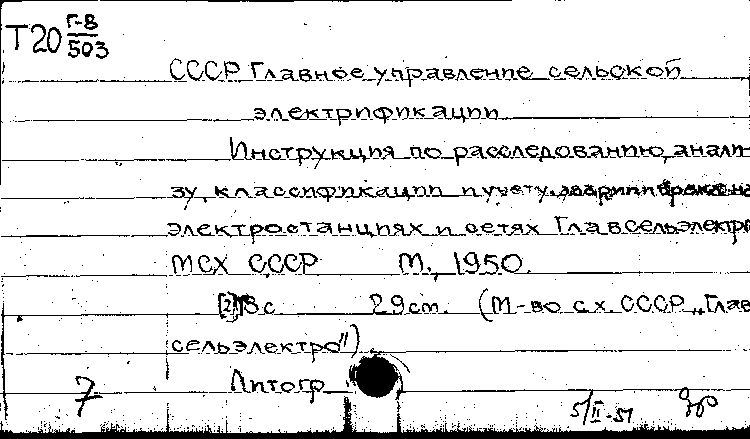 Т20 Г-8/503
СССР Главное управление сельской
электрификации
Инструкция по расследованию, анали-
зу, классификации и учету аварий и брака на
электростанциях и сетях Главсельэлектро
МСХ СССР М., 1950.
[2] 18 с. 29 см. (М-во с.х. СССР „Глав
сельэлектро")
Литогр
7
5/II-51